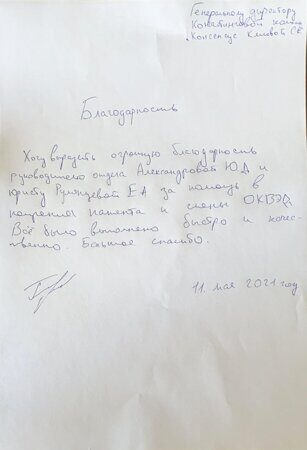 Генеральному директору
Консалтинговой
Консенсус С Е
Благодарность
Хочу выразить огромную благодарность
руководителю отдела Александровой Ю Д и
юристу Румянцевой Е А за помощь в
патента и смены ОКВЭД
Всё было выполнено быстро и качес-
твенно. Большое спасибо.
11 мая 2021 год